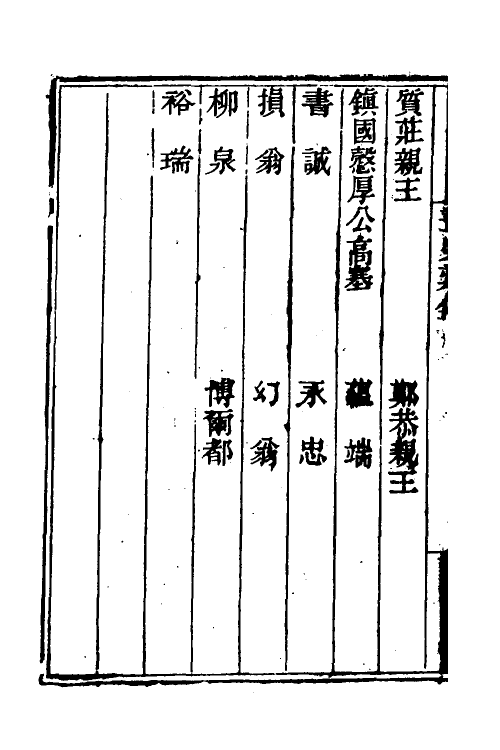 質莊親王　鄭恭親王
鎮國慤厚公高塞　蘊端
書諴　永忠
損翁　幻翁
柳泉　博爾都
裕瑞